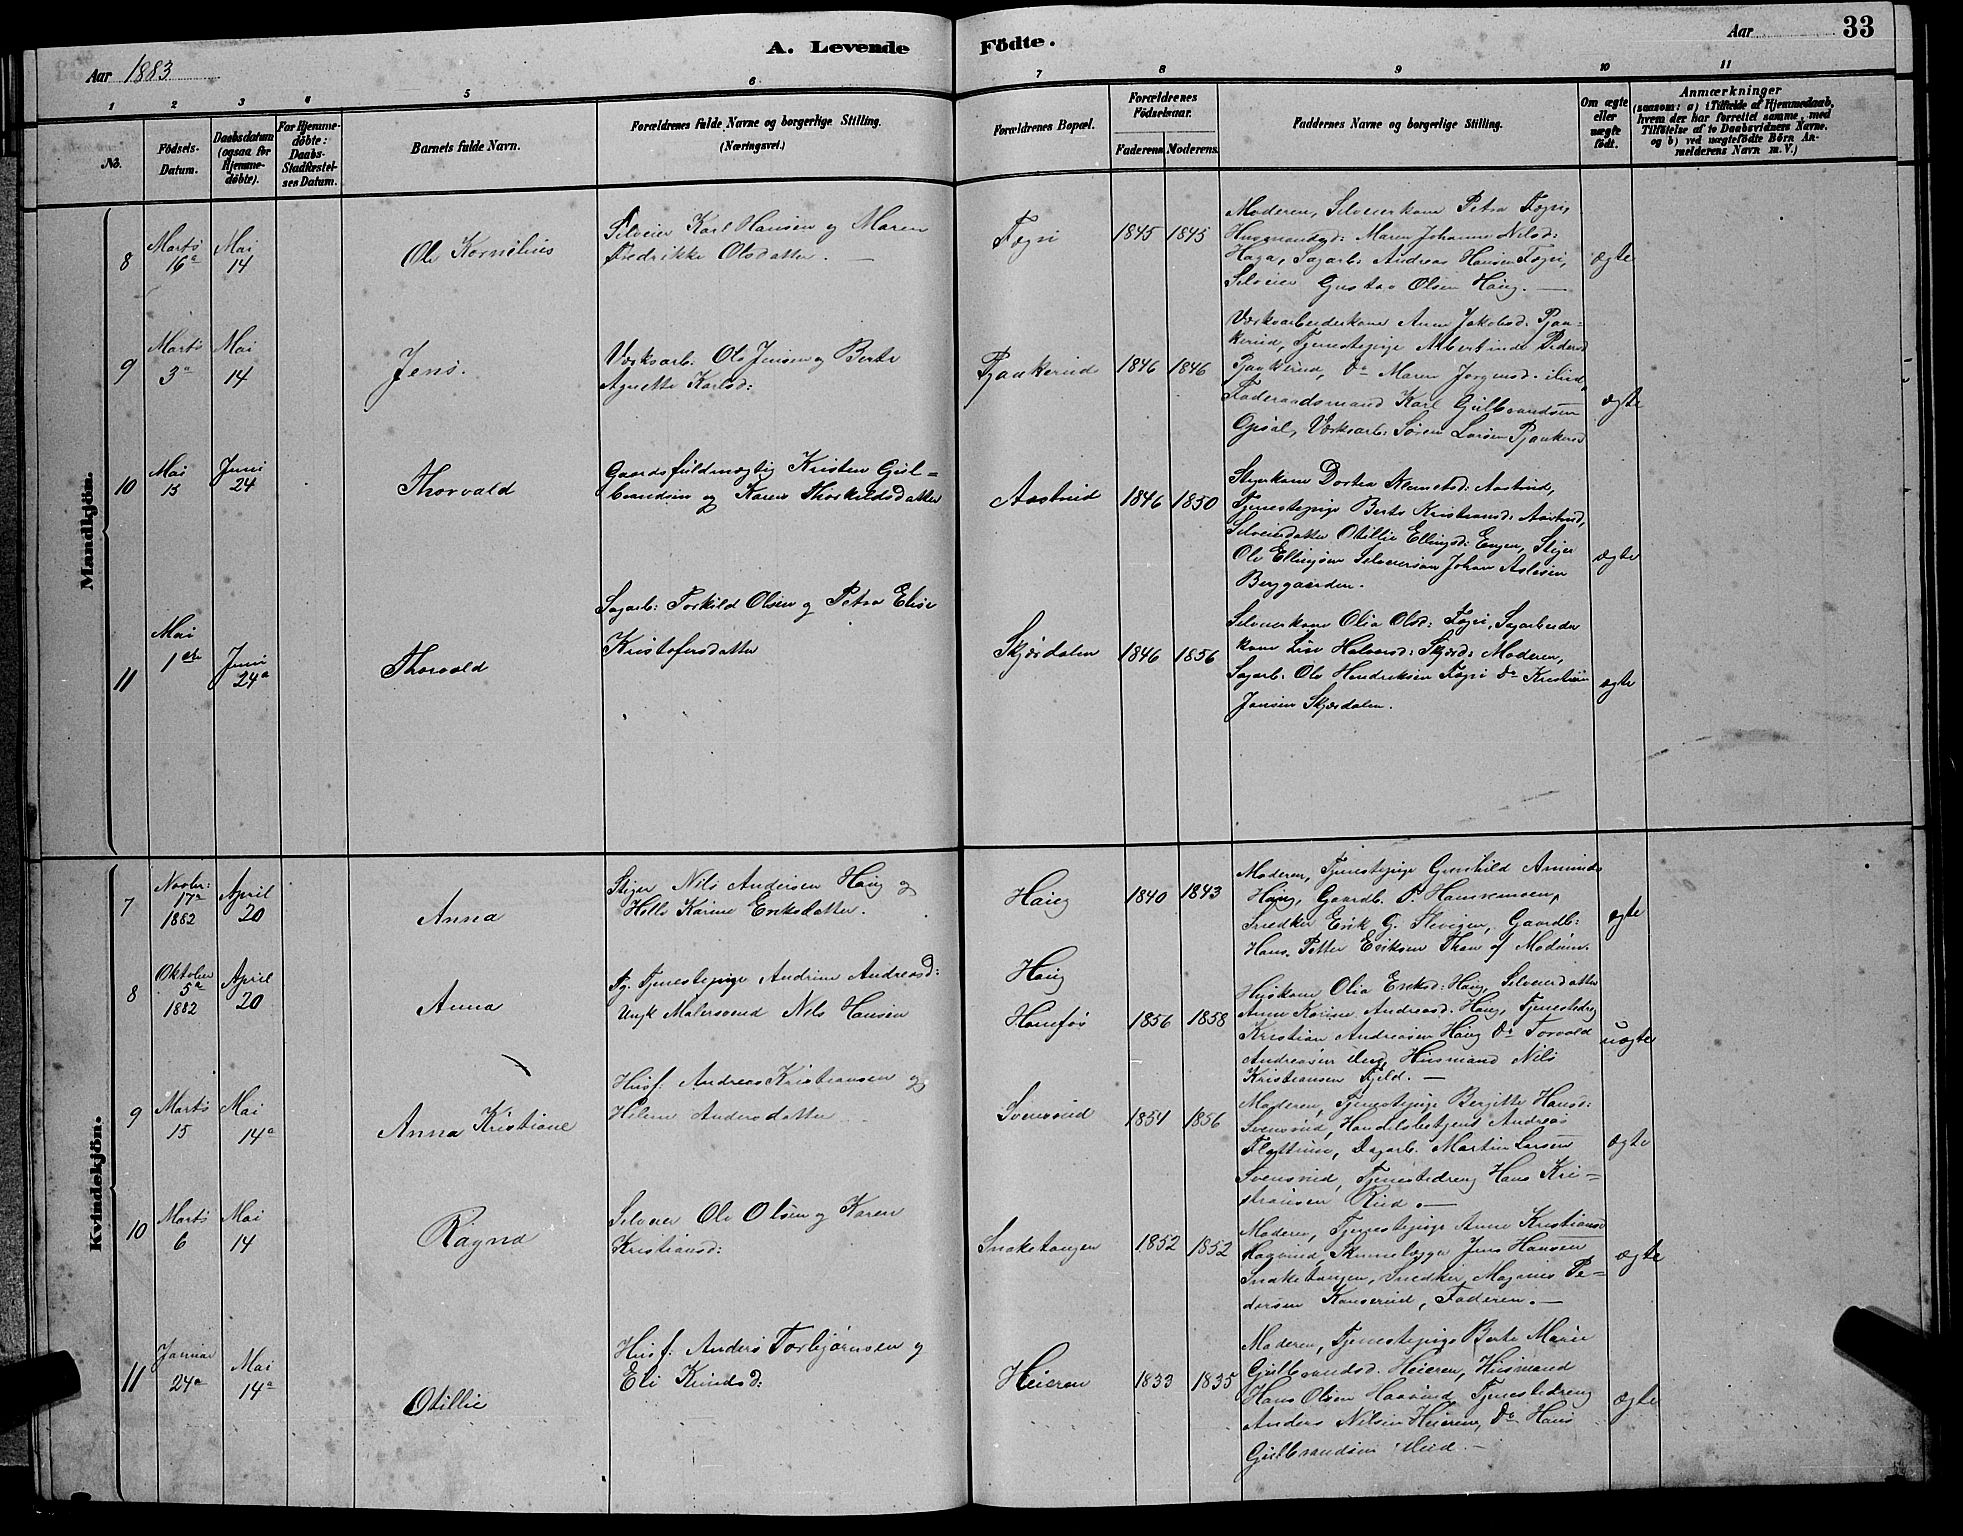 A. Levende Födte.
Aar 33
Aar 1883
1 2 3 4 5 6 7 8 9 10 11
No.
Födsels-
Datum.
Daabsdatum
(ogsaa for
Hjemme-
döbte).
For Hjemme-
döbte:
Daabs-
Stadfæstel-
ses Datum.
Barnets fulde Navn.
Forældrenes fulde Navne og borgerlige Stilling.
(Næringsvei.)
Forældrenes Bopæl.
Forældrenes
Födselsaar.
Faderens. Moderens.
Faddernes Navne og borgerlige Stilling.
Om ægte
eller
uægte
født.
Anmærkninger
(saasom: a) i Tilfælde af Hjemmedaab,
hvem der har forrettet samme, med
Tilföielse af to Daabsvidners Navne,
og b) ved uægtefödte Börn An-
melderens Navn m. V.)
Mandkjön.
8
Marts
16de
Mai
14
Ole Kornelius
Selveier Karl Hansen og Maren
Fredrikke Olsdatter. —
Fægri
1845 1845
Moderen, Selveierkone Petra Fægri,
Husmandsd: Maren Johanne Nilsd:
Haga, Sagarb: Andreas Hansen Fægri,
Selveier Gustav Olsen Haug. —
ægte
9
Marts
3de
Mai
14
Jens.
Værksarb. Ole Jensen og Berte
Agnette Karlsd:
Pjaakerud
1846 1846
Værksarbeiderkone Anne Jakobsd: Pjaa-
kerud, Tjenestepige Albertine Pedersd
Pjaakerud, Do Maren Jørgensd. ibid,
Föderaadsmand Karl Gulbrandsen
Opsal, Værksarb: Søren Larsen Pjaakerud
ægte
10
Mai
15
Juni
24
Thorvald
Gaardsfuldmægtig Kristen Gul-
brandsen og Karen Thorkildsdatter
Aastvid
1846 1850
Stigerkone Dortea Klemetsd: Aastvid,
Tjenestepige Berte Kristiansd: Aastvid,
Selveierdatter Otillie Ellingsd: Engen, Stiger
Ole Ellingsen Selveiersøn Johan Aslesen
Berggaarden.
ægte
11
Mai
1ste
Juni
24de
Thorvald
Sagarb: Torkild Olsen og Petra Elise
Kristofersdatter
Skjærdalen
1846 1856
Selveierkone Olia Olsd: Fægri, Sagarbeider
kone Lise Halvorsd: Skjærd: Moderen,
Sagarb. Ole Hendriksen Fægri Do Kristian
Jansen Skjærdalen.
ægte
Kvindekjön.
7
Novbr:
17de
1882
April
20
Anna
Stiger Nils Andersen Haug og
Helle Karine Eriksdatter.
Haug
1840 1843
Moderen, Tjenestepige Gunhild Amunds
Haug, Gaardb.
Snedker Erik G. Gaardb:
Hans Petter Eriksen af Modum.
ægte
8
Oktober
5te
1882
April
20
Anna
Pg. Tjenestepige Andrine Andreasd:
Ungk Malersvend Nils Hansen
Haug
Hønefos
1856 1858
Huskone Olia Eriksd: Haug, Selveierdatter
Anne Karine Andreasd. Haug, Tjenestedreng
Kristian Andreassen Haug Do Torvald
Andreassen ibid, Husmand Nils
Kristiansen Fjeld. —
uægte
9
Marts
15
Mai
14de
Anna Kristiane
Husf. Andreas Kristiansen og
Helene Andersdatter
Svensrud
1854 1856
Moderen, Tjenestepige Bergitte Hansd:
Svensrud, Handelsbetjent Andreas
Dagarb. Martin Larsen
Svensrud, Tjenestedreng Hans Kri-
stiansen Rud. —
ægte
10
Marts
6
Mai
14
Ragna
Selveier Ole Olsen og Karen
Kristiansd:
Snaketangen
1852 1852
Moderen, Tjenestepige Anne Kristiansd
Skinnelægger Jens Hansen
Snaketangen, Snedker Magnus Pe-
dersen Kanserud, Faderen. —
ægte
11
Januar
24de
Mai
14de
Otillie
Husf. Anders Torbjørnsen og
Eli Knudsd:
Heieren
1833 1835
Moderen, Tjenestepige Berte Marie
Gulbrandsd. Heieren, Husmand
Hans Olsen Tjenestedreng
Anders Nilsen Heieren, Do Hans
Gulbrandsen ibid. —
ægte